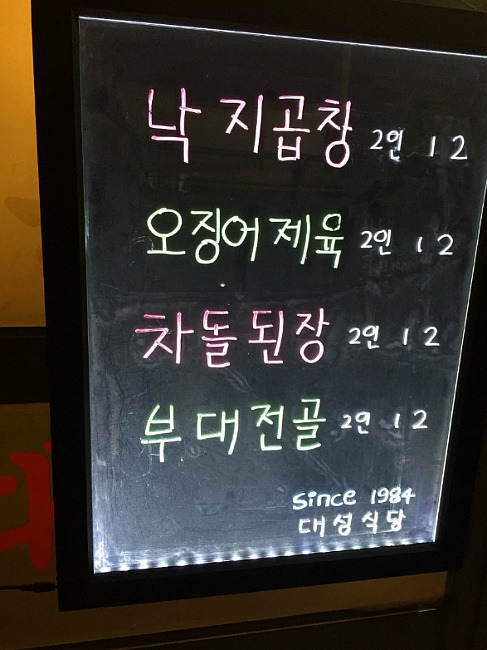 낙지곱창 2인 12
오징어제육 2인 12
차돌된장 2인 12
부대전골 2인 12
Since 1984
대성식당